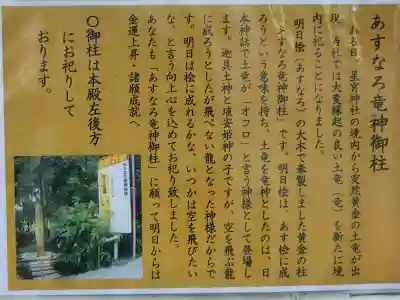 あすなろ竜神御柱
ある日、星宮神社の境内から突然黄金の土竜が出
現、当社では大変縁起の良い土竜(竜)を新たに境
内に祀ることになりました。
明日桧(あすなろ)の大木で奉製しました黄金の柱
「あすなろ竜神御柱」です。明日桧は、あす桧に成
ろうという意味を持ち、土竜を竜神としたのは、日
本神話で土竜が「オゴロ」と言う神様として登場し
ます。迦具土神と埴安姫神の子ですが、空を飛ぶ龍
に成ろうとしたが飛べない龍となった神様だからで
す。明日は桧に成れるかな、いつかは空を飛びたい
な、と言う向上心を込めてお祀り致しました。
あなたも「あすなろ竜神御柱」に願って明日からは
金運上昇・諸願成就へ
〇御柱は本殿左後方
にお祀りして
おります。